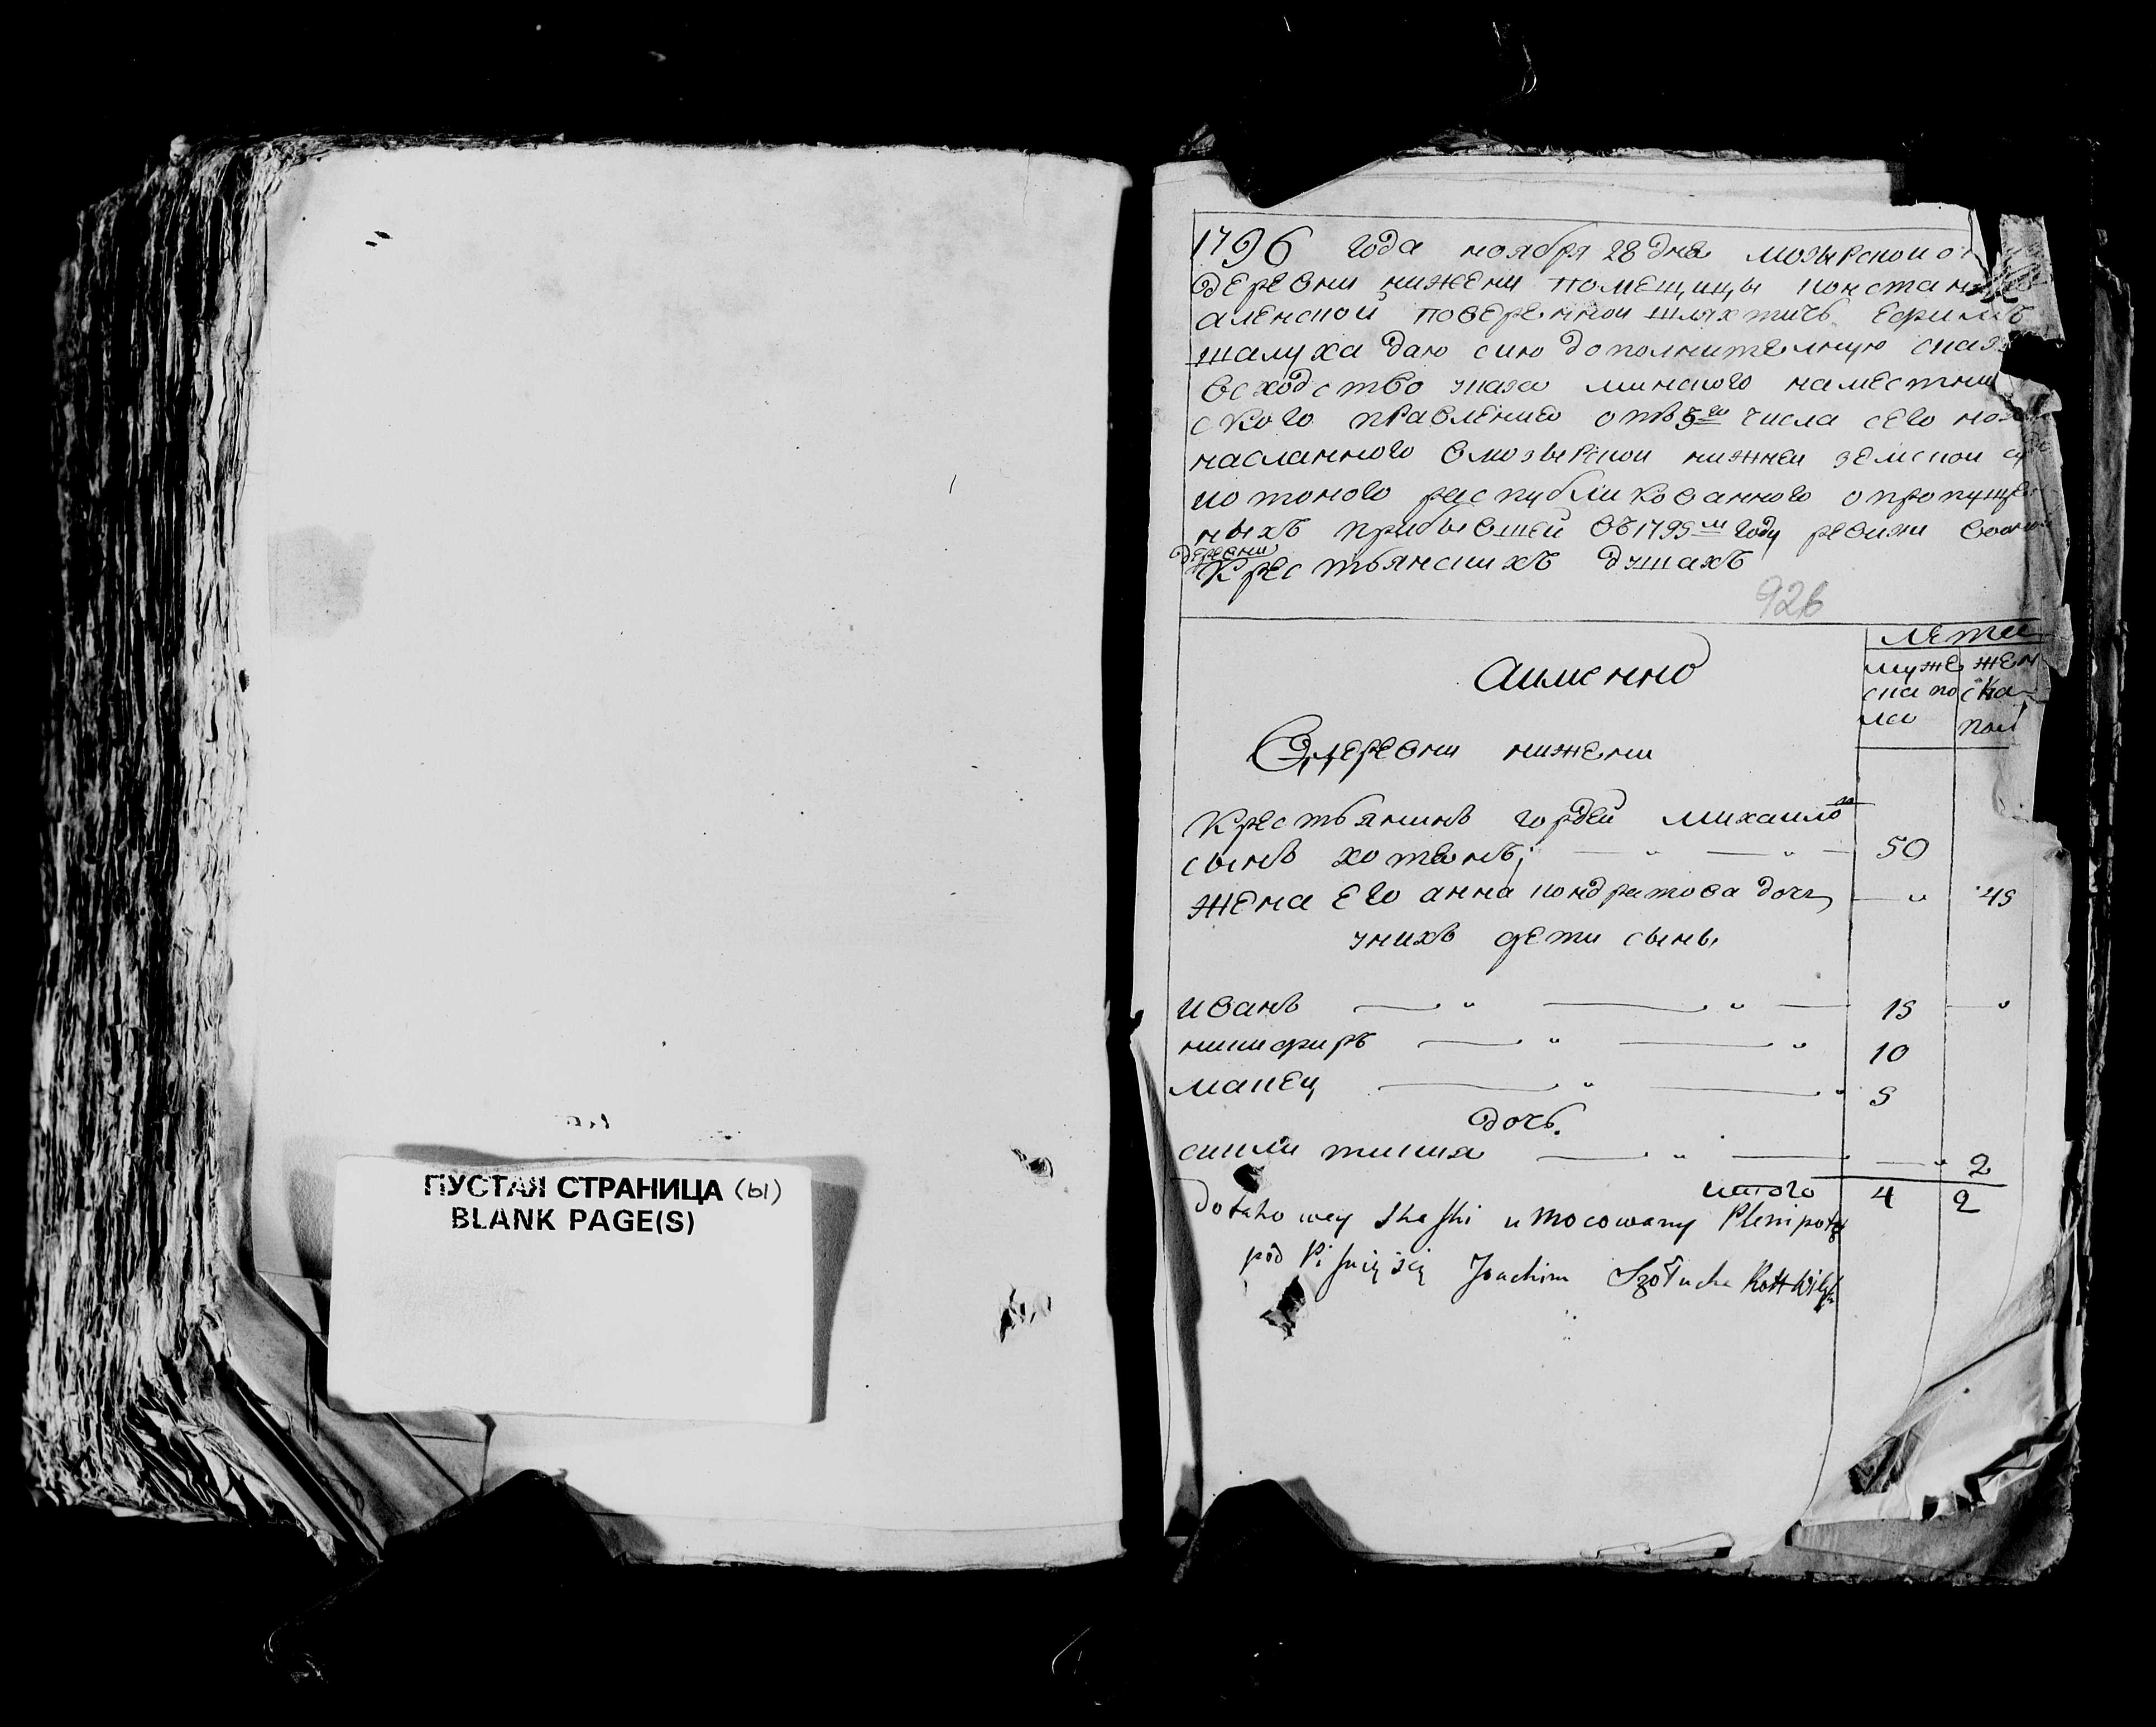 ПУСТАЯ СТРАНИЦА (ы)
BLANK PAGE(S)
1796 года ноября 28 дня мозырской о
деревни нижени помещицы констан
аленской поверенной шляхтичь ефимъ
шалуха даю сию дополнителную сказ
всходство указа минского наместни
ского правления отъ 5го числа сего ноя
насланного вмозырской нижней земской су
ио оного распубликованного опропуще
ныхъ прибывшей въ 1795м году ревизи воной
деревни
крестьянскихъ душахъ
926
лета
аимено
муже ска по ла
жен ска пол
Вдеревни нижени
крестьянинъ гордей михаило
сынъ хотянъ; 50
жена его анна кондратова дочь 45
уних дети сынь,
иванъ 15
никифиръ 10
макец 5
дочь.
2
итого 4 2
do takowey skaski umocowany Plenipot
pod Joachim Szołucha